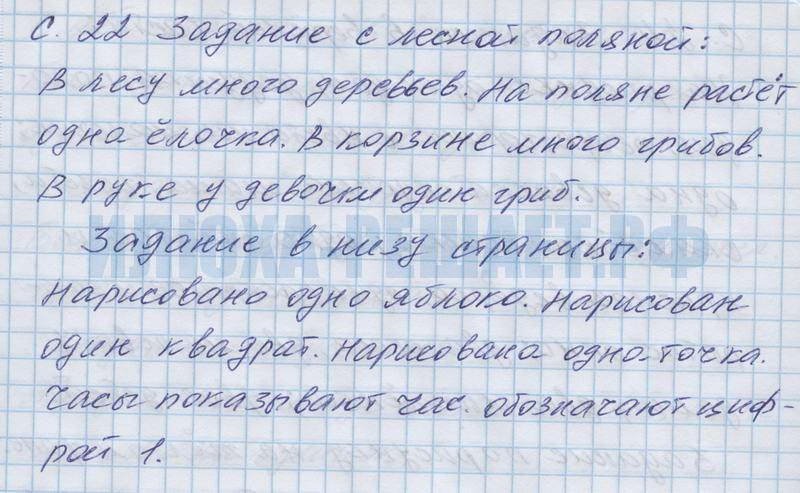 с. 22 Задание с лесной поляной:
В лесу много деревьев. На поляне растёт
одна ёлочка. В корзине много грибов.
В руке у девочки один гриб.
ИЛЮХА-РЕШАЕТ.РФ
Задание в низу страницы:
Нарисовано одно яблоко. Нарисован
один квадрат. Нарисована одна точка.
Часы показывают час. обозначают циф-
рой 1.